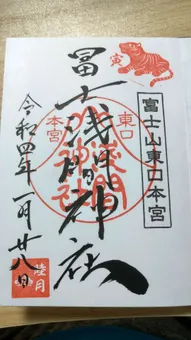 寅
冨士山東口本宮
東口
本宮
冨士浅間神社
令和四年一月廿八日
睦月